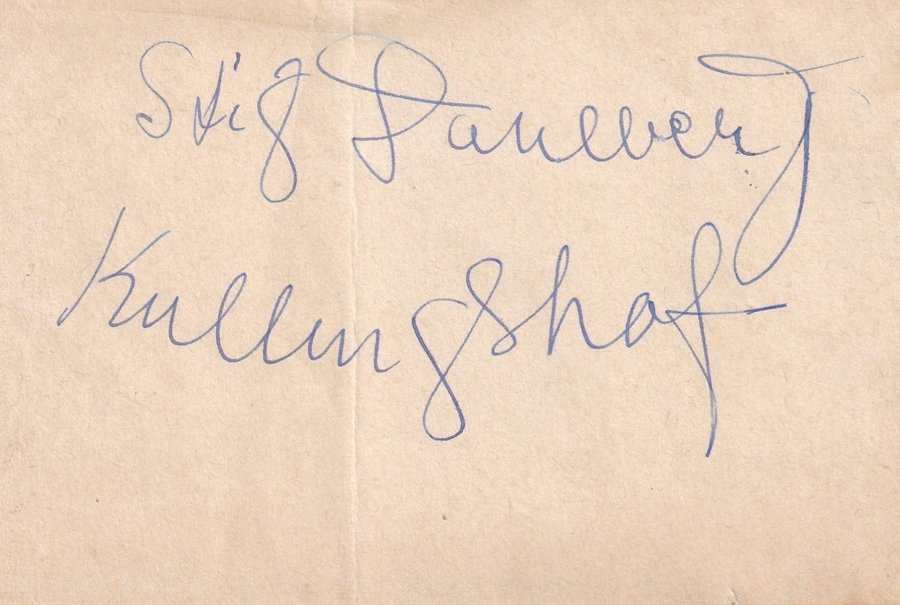 Stig Dahlberg
Kullingshof